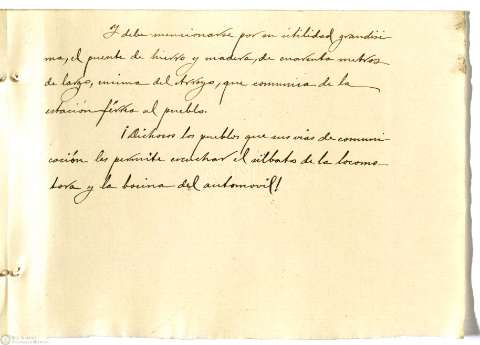 Y debe mencionarse por su utilidad grandisi
ma, el puente de hierro y madera, de cuarenta metros
de largo, encima del Arroyo, que comunica de la
estación férrea al pueblo.
¡Dichosos los pueblos que sus vias de comuni
cación les permite escuchar el silbato de la locomo
tora y la bocina del automovil!